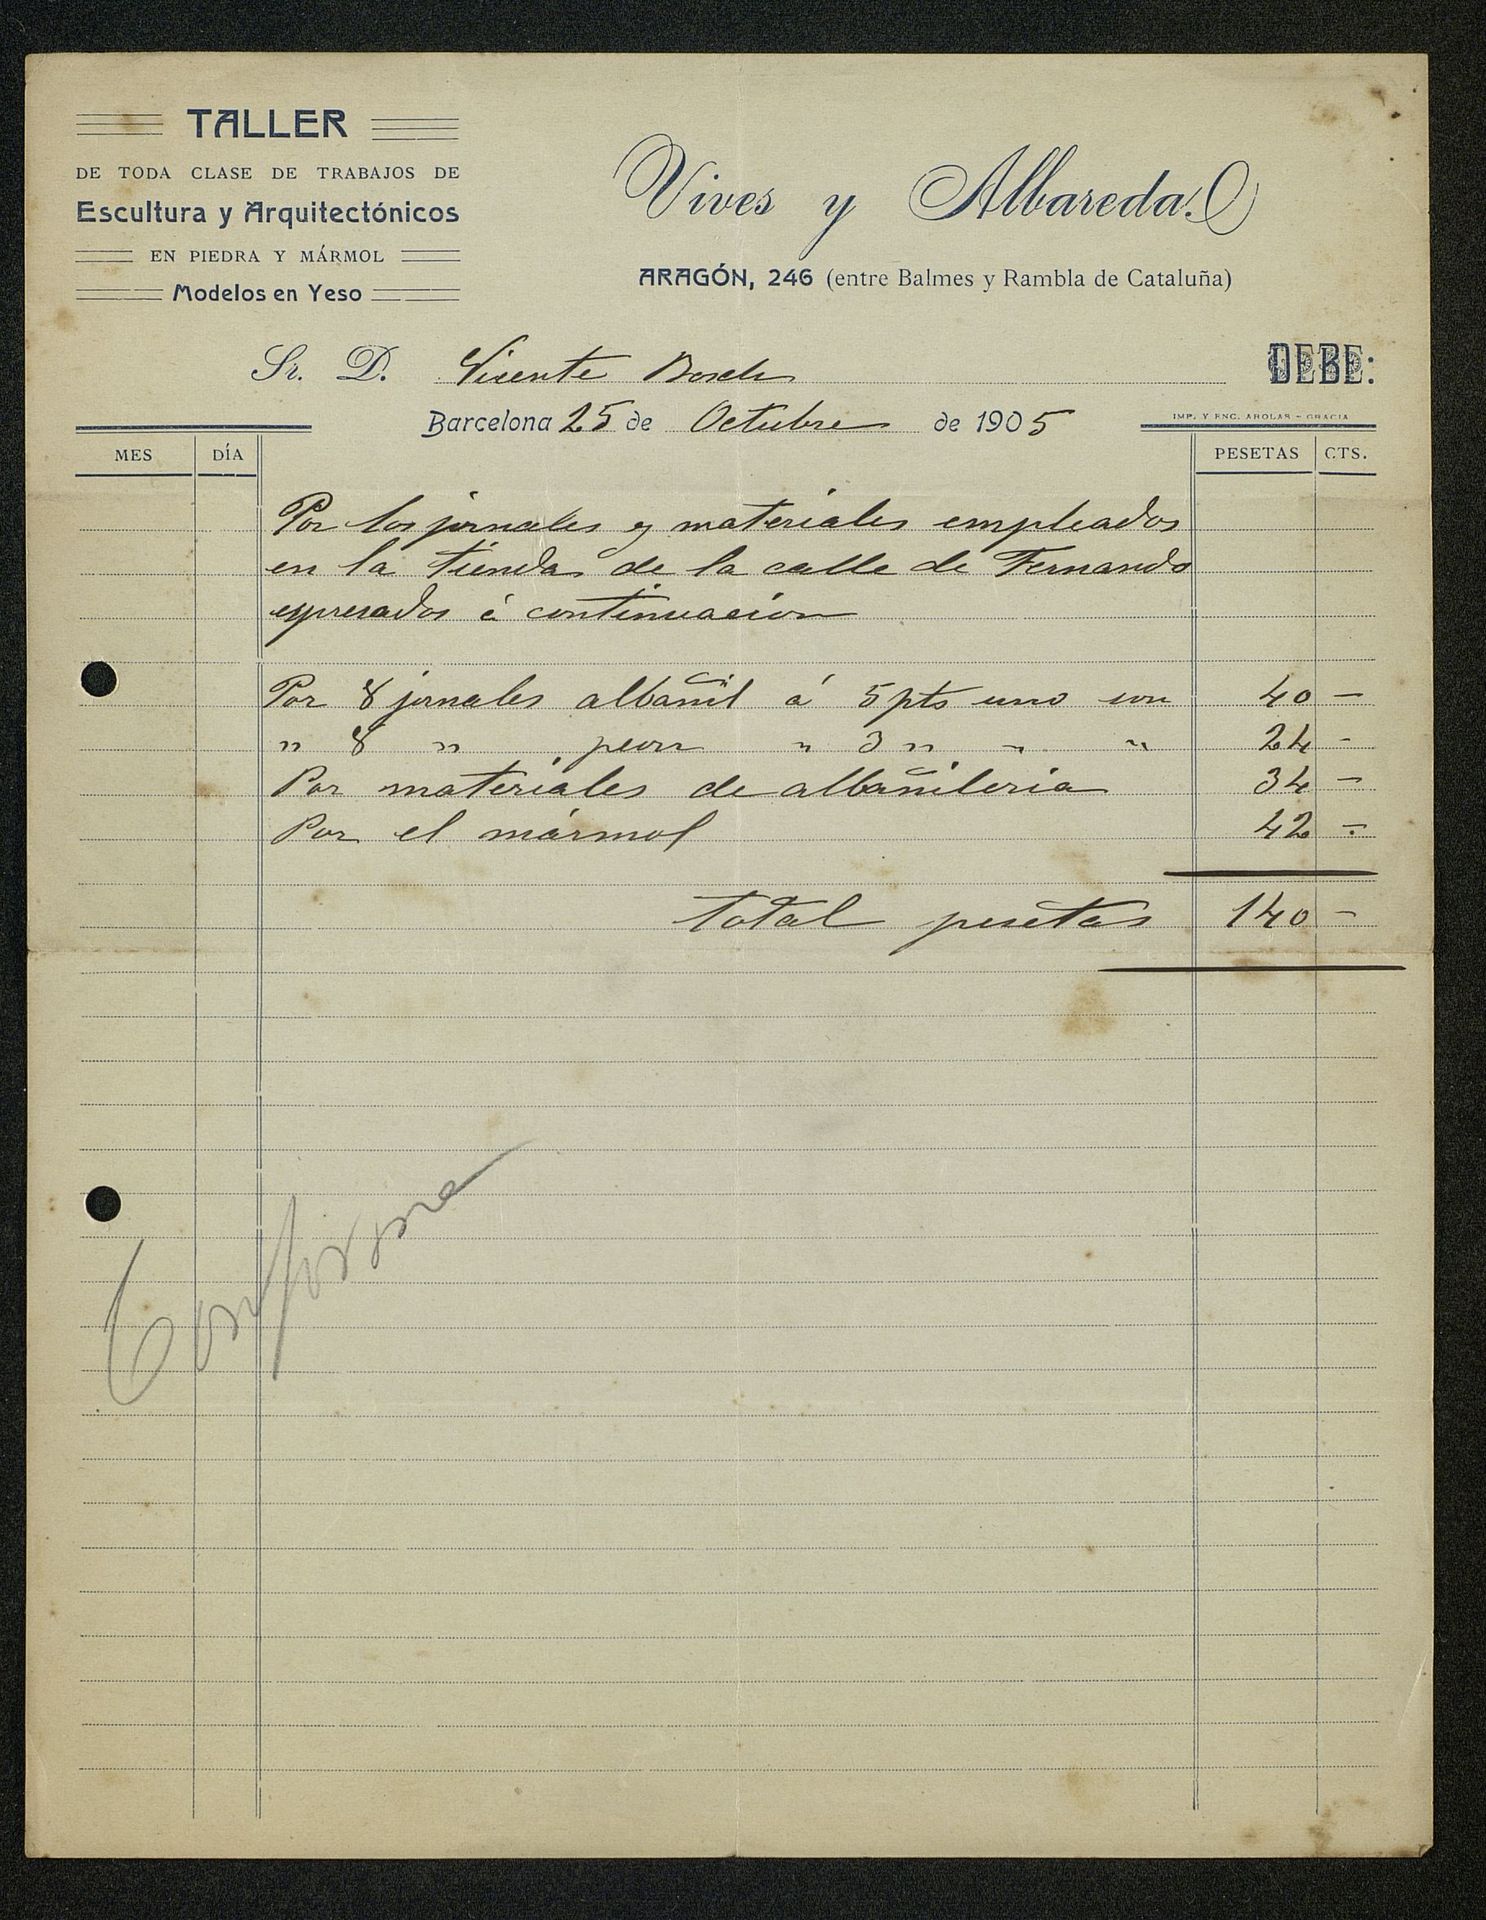 TALLER
DE TODA CLASE DE TRABAJOS DE
Escultura y Arquitectónicos
EN PIEDRA Y MÁRMOL
Modelos en Yeso
Vives y Albareda.
ARAGÓN, 246 (entre Balmes y Rambla de Cataluña)
Sr. D. Vicente Bosch DEBE:
Barcelona 25 de Octubre de 1905
IMP. Y ENC. AROLAS - GRACIA
MES DÍA PESETAS CTS.
Por los jornales y materiales empleados
en la tienda de la calle de Fernando
espresados á continuacion
Por 8 jornales albañil á 5 pts uno son 40 -
" 8 " peon " 3 " " " 24 -
Por materiales de albañileria 34 -
Por el mármol 42 -
total pesetas 140 -
Conforme